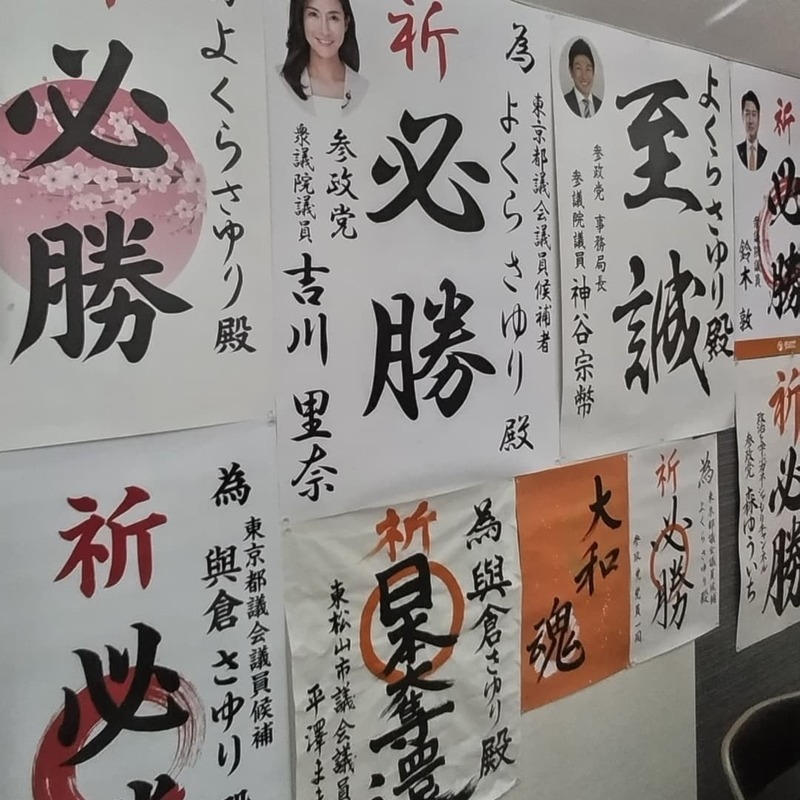 必勝
よくらさゆり殿
祈
必勝
為
東京都議会議員候補者
よくらさゆり殿
参政党
衆議院議員
吉川里奈
至誠
よくらさゆり殿
参政党 事務局長
参議院議員 神谷宗幣
祈
必勝
鈴木 敦
為
東京都議会議員候補
與倉さゆり殿
祈
必
為與倉さゆり殿
祈
日本奪還
東松山市議会議員
平澤
大和
魂
為
東京都議会議員候補
よくらさゆり殿
祈
必勝
参政党党員一同
祈
必勝
参政党 森ゆういち